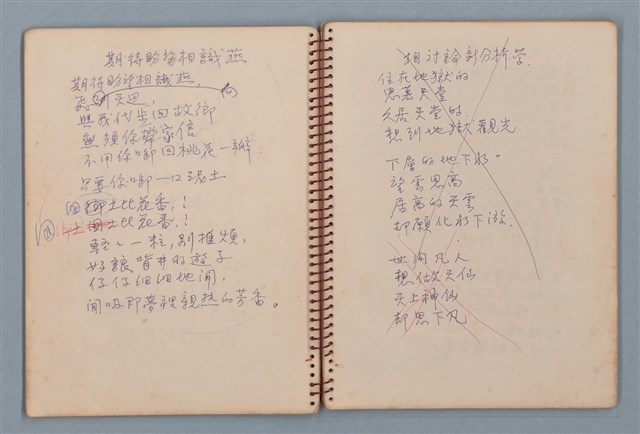 期待盼望相識燕
期待盼望相識燕,
飛 天迴,
與我代步回故鄉
無須你帶家信
不用你啣回桃花一瓣
只要你啣一口泥土
土比花香,!
土比花香,!
輕輕一粒,别推煩,
好讓背井的遊子
仔仔細細地聞,
聞吸那夢裡親熱的芳香。
相討論到分析學.
住在地獄的
思慕天堂
久居天堂的
想到地獄觀光
下層的地下水。
望雲思高
居高的天雲
却願化水下游.
世间凡人
想做天仙
天上神仙
却思下凡